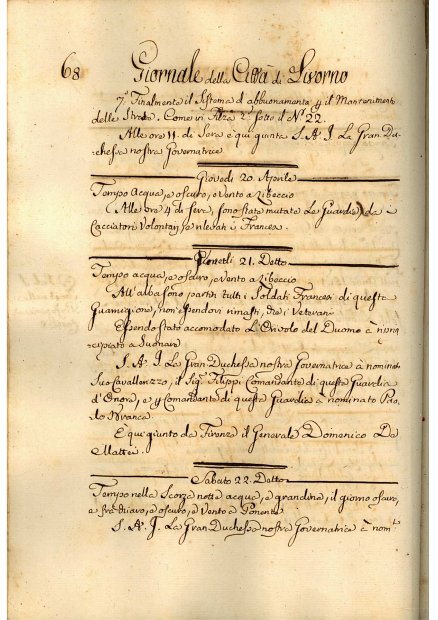 68 Giornale della Città di Livorno
7.° Finalmente il Sistema d'abbuonamento p il Mantenimento
delle Strade. Come in Filza 2.ª sotto il N.° 22.
Alle ore 11. di Sera è qui giunta S. A. I. La Gran Du-
chessa nostra Governatrice
Giovedì 20 Aprile
Tempo Acqua, e oscuro, e Vento a Libeccio
Alle ore 4 di Sera, sono state mutate Le Guardie da i
Cacciatori Volontarj, e rilevati i Francesi.
21. Detto
Tempo acqua, e oscuro, e Vento a Libeccio
All'alba sono partiti tutti i Soldati Francesi di questa
Guarnigione, non essendovi rimasti, che i Veterani
Essendo stato accomodato L'Orivolo del Duomo à
a Suonare
S. A. I. La Gran Duchessa nostra Governatrice à nominato
Suo Cavallerizzo, il Sig.r Filippi Comandante di questa Guardia
d'Onore, e p Comandante di questa Guardia à nominato Pao-
lo Branca.
E qui giunto da Firenze il Generale Domenico De
Mattei.
Sabato 22. Detto
Tempo nella Scorsa notte acqua, e grandine, il giorno oscuro,
e oscuro, e Vento a Ponente
S. A. I. La Gran Duchessa nostra Governatrice à nom